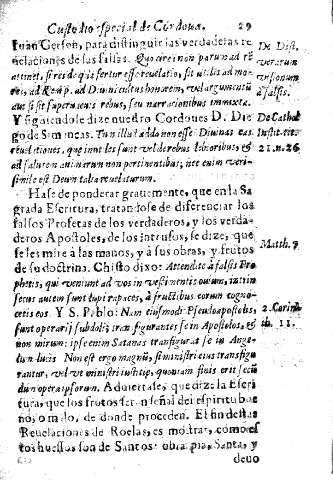 Custodio especial de Cordoua. 29
Iuan Gerson, para distinguir las verdaderas re
uelaciones de las falsas. Quo circi non parum ad rē
attinet, si res de qua fertur esse reuelatio, sit utilis ad mo-
res, ad Reip. ad Diuini cultus honorem, vel argumentū
aut si sit superuacuis rebus, seu narracionibus immixta.
Y siguiendole dize nuestro Cordoues D. Die
go de Simancas. Tum illud addo non esse Diuinas eas
reuelationes, quę inutiles sunt vel de rebus leboribus, &
ad salutem animarum non pertinentibus, nec enim veri-
simile est Deum talia reuelaturum.
Hase de ponderar grauemente, que en la Sa
grada Escritura, tratandose de diferenciar los
falsos Profetas de los verdaderos, y los verda-
deros Apostoles, de los intrusos, se dize, que
se les mire à las manos, y à sus obras, y frutos
de su doctrina. Christo dixo: Attendite à falsis Pro
phetis, qui veniunt ad vos in vestimentis ouium, intrin
secus autem sunt lupi rapaces, à fructibus eorum cogno-
cetis eos. Y S. Pablo: Nam eiusmodi Pseudoapostolus,
sunt operarij subdoli, transfigurantes se in Apostolos, &
non mirum: ipse enim Satanas transfigurat se in Ange-
lum lucis Non est ergo magnū, si ministri eius transfigu
rantur, velut ministri iustitię, quorum finis erit secū
dum opera ipsorum. Aduiertase, que dize la Escri
tura, que los frutos seran señal del espiritu bue
no, o malo, de donde proceden. El fin destas
Reuelaciones de Roelas, es mostrar, como es
tos huessos son de Santos: obra pia, Santa, y
deuo
De Dist.
verarum
visionum
à falsis.
De Cathol
Instit. tit.
21. n. 26.
Matth. 7
2. Corint
th. 11.